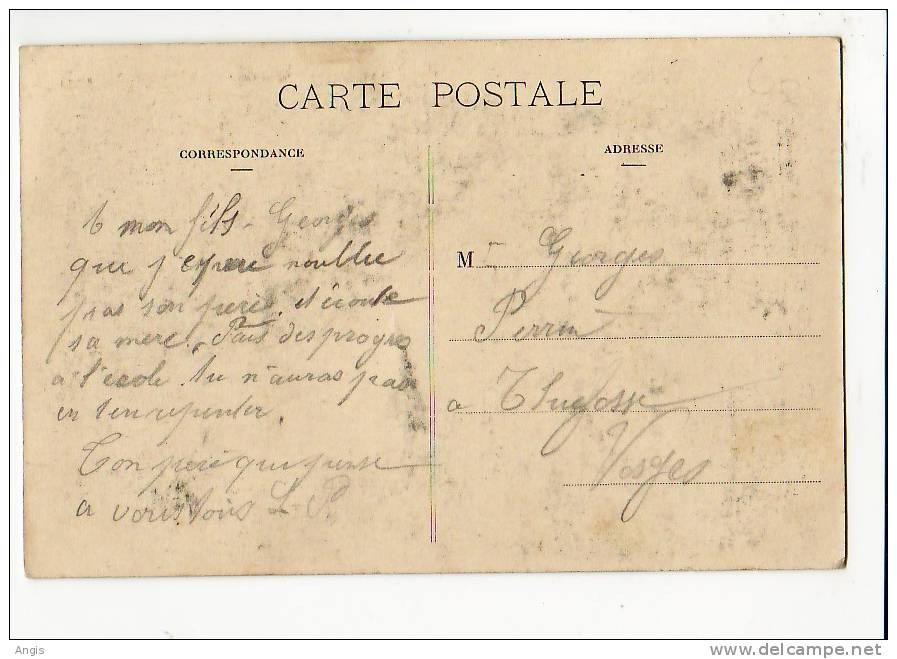 CARTE POSTALE
CORRESPONDANCE
ADRESSE
A mon fils Georges
que j'espere noublie
pas son pere. et écoute
sa mere. Fais des progres
a l'école. tu n'auras pas
en ten repenter.
Ton pere qui pense
a vous tous L. P.
M Georges
Perrin
a Thiefosse
Vosges
Angis
delcampe.net